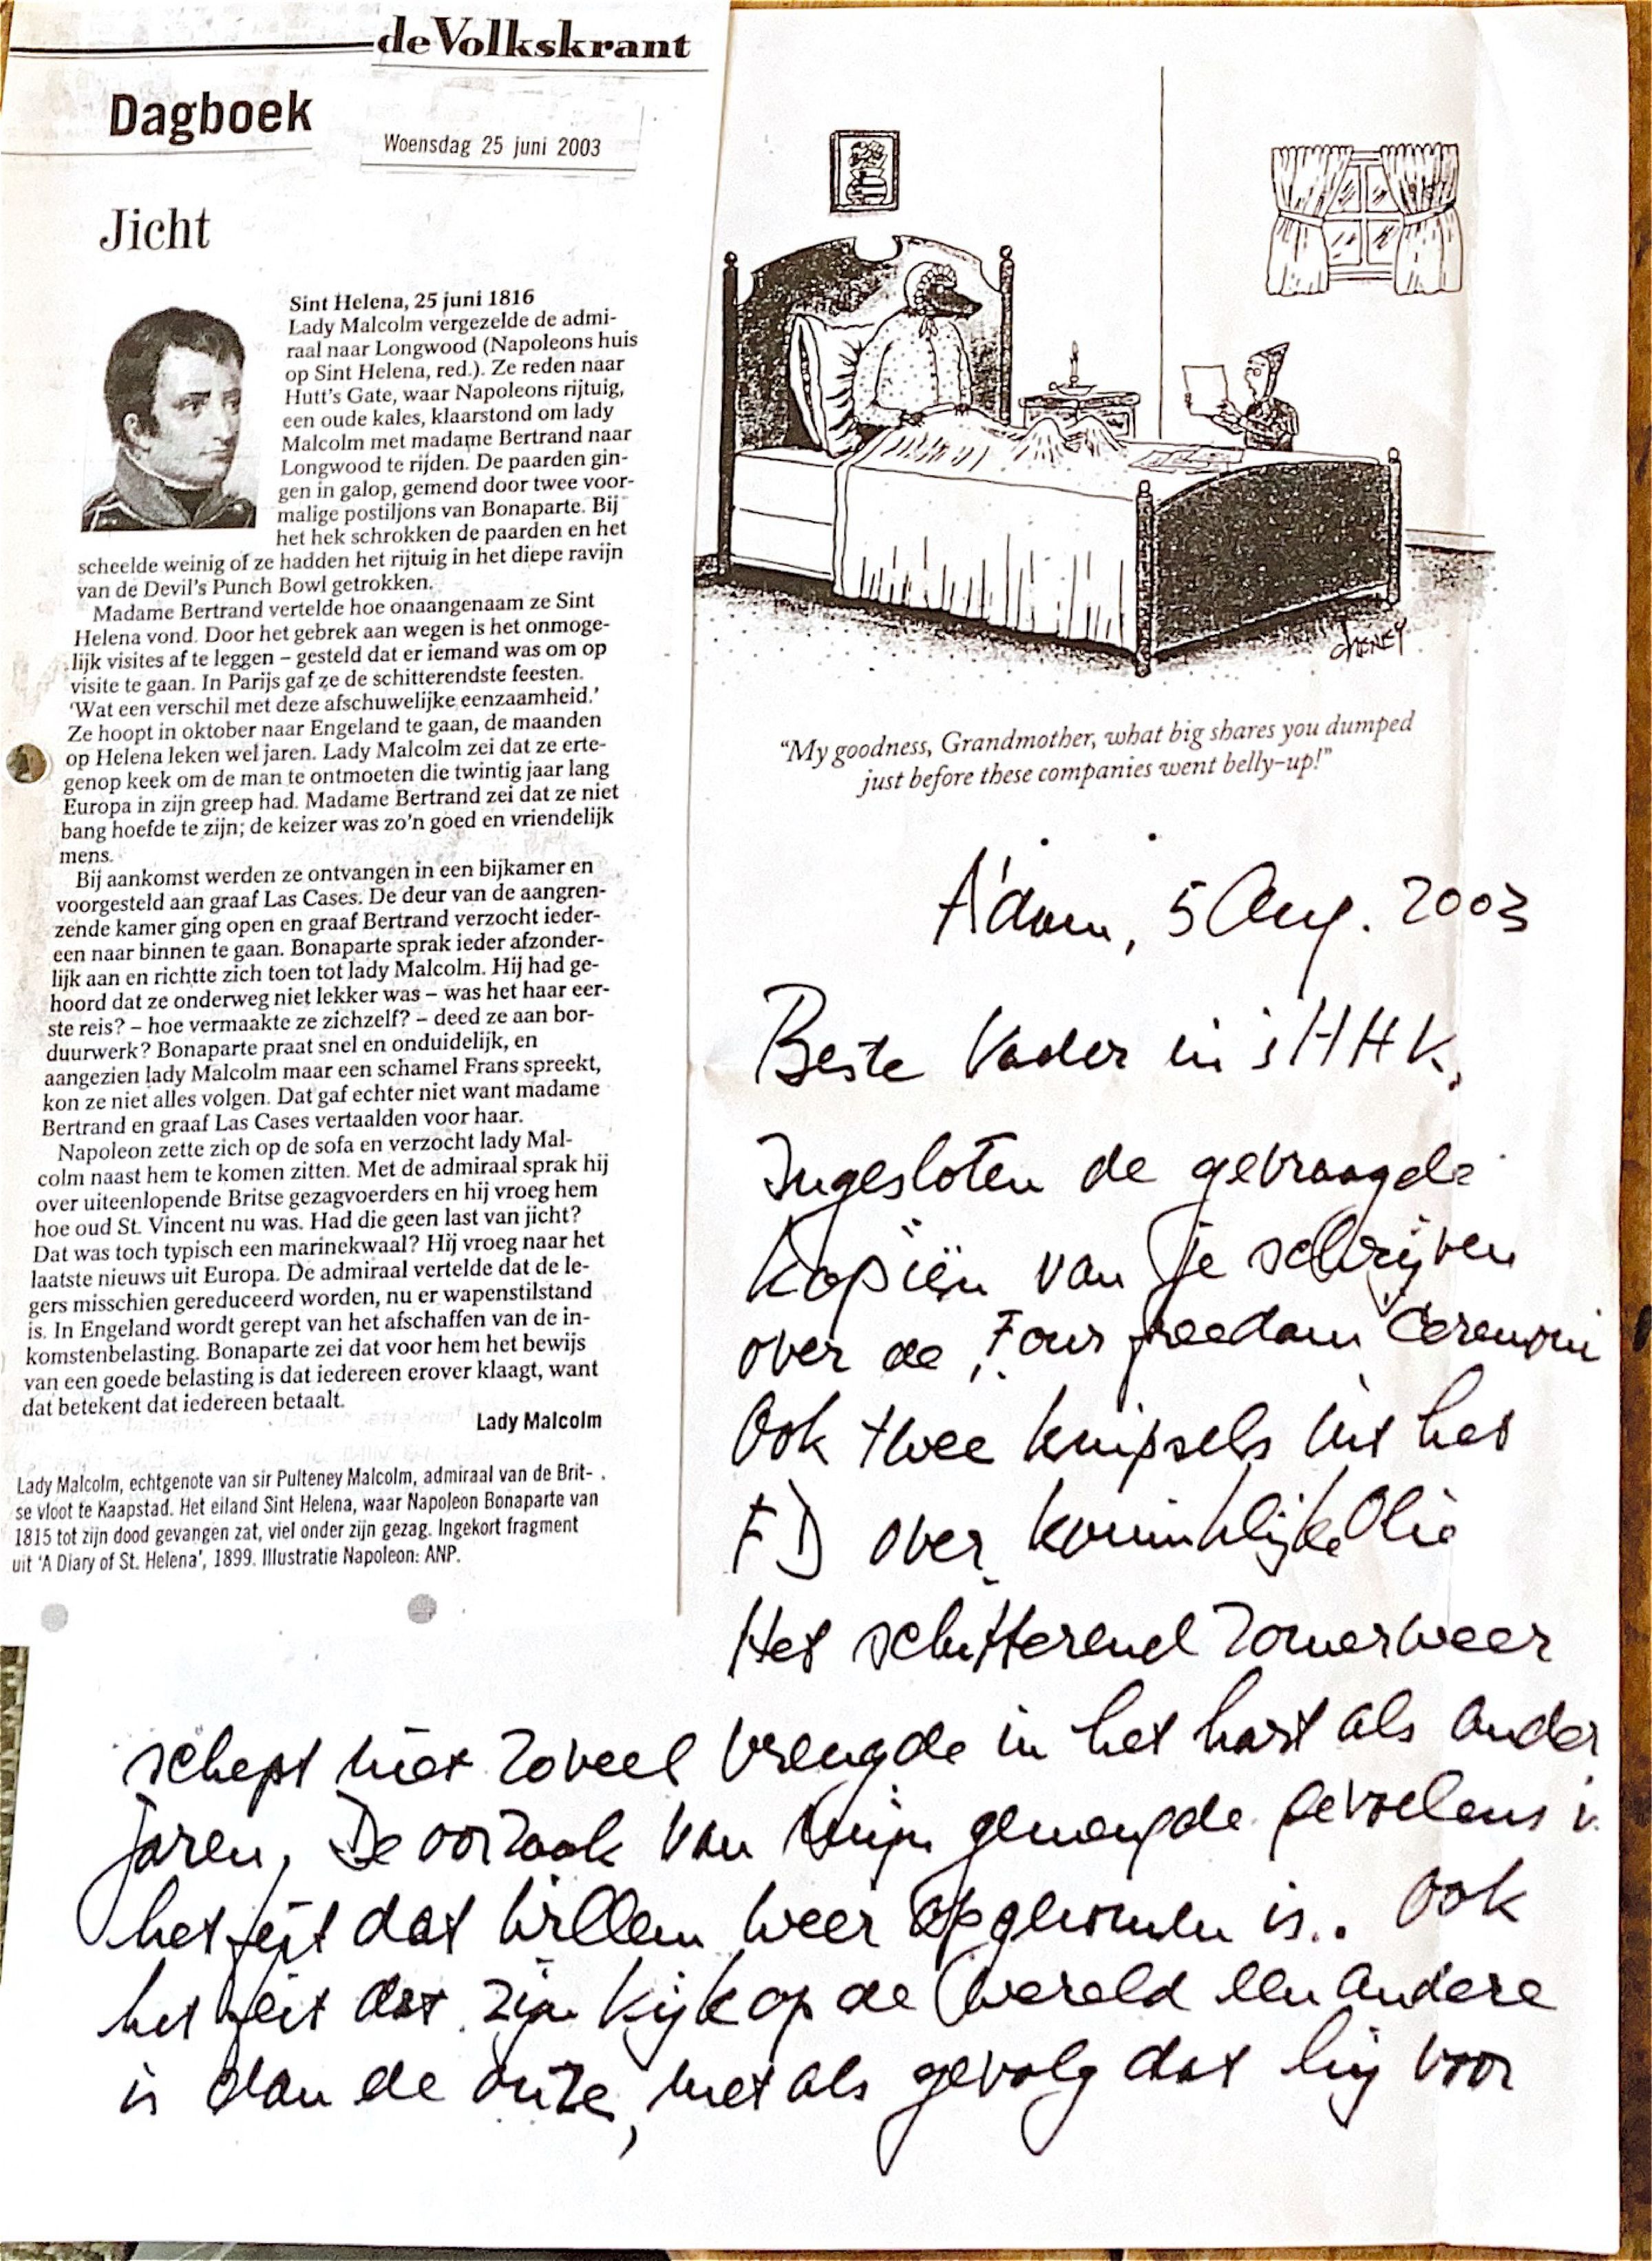 de Volkskrant
Dagboek
Woensdag 25 juni 2003
Jicht
Sint Helena, 25 juni 1816
Lady Malcolm vergezelde de admi-
raal naar Longwood (Napoleons huis
op Sint Helena, red.). Ze reden naar
Hutt's Gate, waar Napoleons rijtuig,
een oude kales, klaarstond om lady
Malcolm met madame Bertrand naar
Longwood te rijden. De paarden gin-
gen in galop, gemend door twee voor-
malige postiljons van Bonaparte. Bij
het hek schrokken de paarden en het
scheelde weinig of ze hadden het rijtuig in het diepe ravijn
van de Devil's Punch Bowl getrokken.
Madame Bertrand vertelde hoe onaangenaam ze Sint
Helena vond. Door het gebrek aan wegen is het onmoge-
lijk visites af te leggen – gesteld dat er iemand was om op
visite te gaan. In Parijs gaf ze de schitterendste feesten.
'Wat een verschil met deze afschuwelijke eenzaamheid.'
Ze hoopt in oktober naar Engeland te gaan, de maanden
op Helena leken wel jaren. Lady Malcolm zei dat ze erte-
genop keek om de man te ontmoeten die twintig jaar lang
Europa in zijn greep had. Madame Bertrand zei dat ze niet
bang hoefde te zijn; de keizer was zo'n goed en vriendelijk
mens.
Bij aankomst werden ze ontvangen in een bijkamer en
voorgesteld aan graaf Las Cases. De deur van de aangren-
zende kamer ging open en graaf Bertrand verzocht ieder-
een naar binnen te gaan. Bonaparte sprak ieder afzonder-
lijk aan en richtte zich toen tot lady Malcolm. Hij had ge-
hoord dat ze onderweg niet lekker was – was het haar eer-
ste reis? – hoe vermaakte ze zichzelf? – deed ze aan bor-
duurwerk? Bonaparte praat snel en onduidelijk, en
aangezien lady Malcolm maar een schamel Frans spreekt,
kon ze niet alles volgen. Dat gaf echter niet want madame
Bertrand en graaf Las Cases vertaalden voor haar.
Napoleon zette zich op de sofa en verzocht lady Mal-
colm naast hem te komen zitten. Met de admiraal sprak hij
over uiteenlopende Britse gezagvoerders en hij vroeg hem
hoe oud St. Vincent nu was. Had die geen last van jicht?
Dat was toch typisch een marinekwaal? Hij vroeg naar het
laatste nieuws uit Europa. De admiraal vertelde dat de le-
gers misschien gereduceerd worden, nu er wapenstilstand
is. In Engeland wordt gerept van het afschaffen van de in-
komstenbelasting. Bonaparte zei dat voor hem het bewijs
van een goede belasting is dat iedereen erover klaagt, want
dat betekent dat iedereen betaalt.
Lady Malcolm
Lady Malcolm, echtgenote van sir Pulteney Malcolm, admiraal van de Brit-
se vloot te Kaapstad. Het eiland Sint Helena, waar Napoleon Bonaparte van
1815 tot zijn dood gevangen zat, viel onder zijn gezag. Ingekort fragment
uit 'A Diary of St. Helena', 1899. Illustratie Napoleon: ANP.
CHENEY
"My goodness, Grandmother, what big shares you dumped
just before these companies went belly-up!"
A'dam, 5 Aug. 2003
Beste Vader in 's HHK,
Ingesloten de gevraagde
kopiën van je schrijven
over de Four freedom Ceremoni
Ook twee knipsels uit het
FD over koninklijke Olie
Het schitterend Zomerweer
schept niet zoveel vreugde in het hart als ander
jaren, De oorzaak van mijn gemengde gevoelens i
het feit dat Willem weer opgenomen is.. Ook
het feit dat zijn kijk op de wereld een andere
is dan de onze, met als gevolg dat hij voor